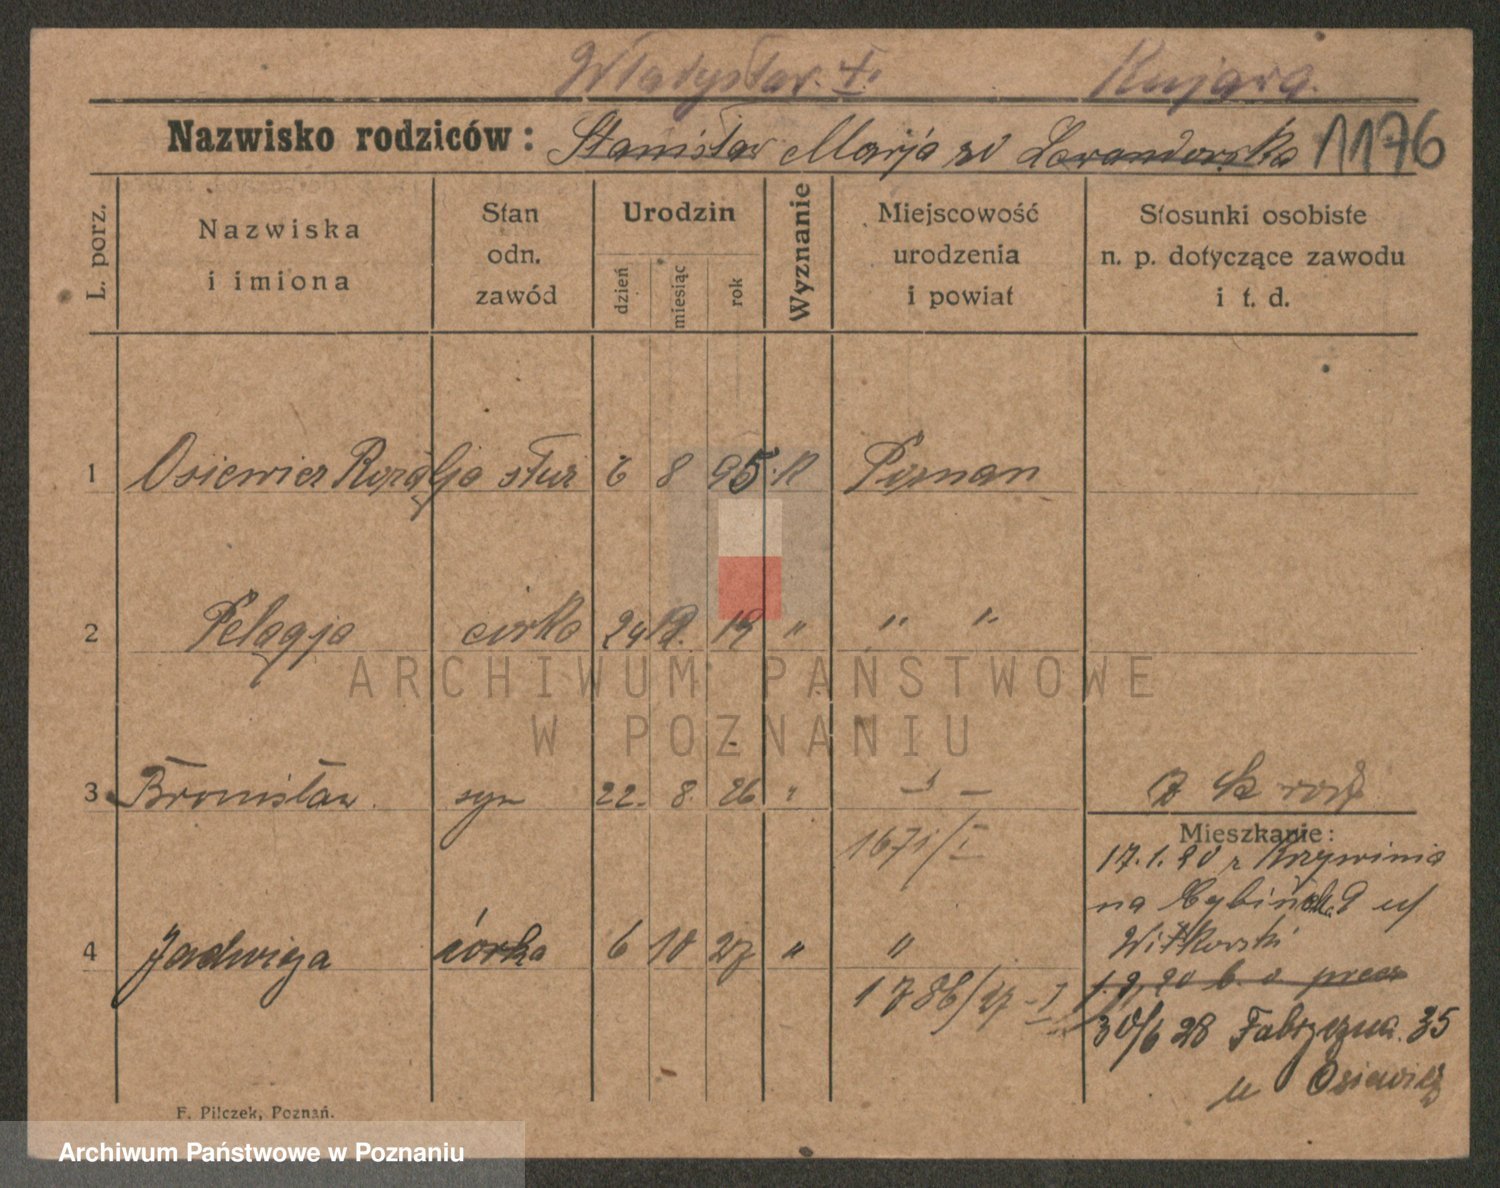 Władysław. I. Kujawa.
Nazwisko rodziców: Stanisław Marja Lewandowska 1176
L. porz.
Nazwiska i imiona
Stan odn. zawód
Urodzin
dzień
miesiąc
rok
Wyznanie
Miejscowość urodzenia i powiat
Stosunki osobiste n. p. dotyczące zawodu i t. d.
1 Osiewicz Rozalja służ 6 8 95 K Poznan
2 Pelagja córka 24 12. 19 " " "
3 Bronisław. syn 22. 8. 26 "
1671/I
Mieszkanie:
17.1.20 z Krzywinia
na 9 u/
Witkowski
4 Jadwiga córka 6 10 27 " "
1786/27 - I
1.9.20 b. a
30/6 28 Fabryczna. 35
u Osiewicz
F. Pilczek, Poznań.
ARCHIWUM PAŃSTWOWE
W POZNANIU
Archiwum Państwowe w Poznaniu